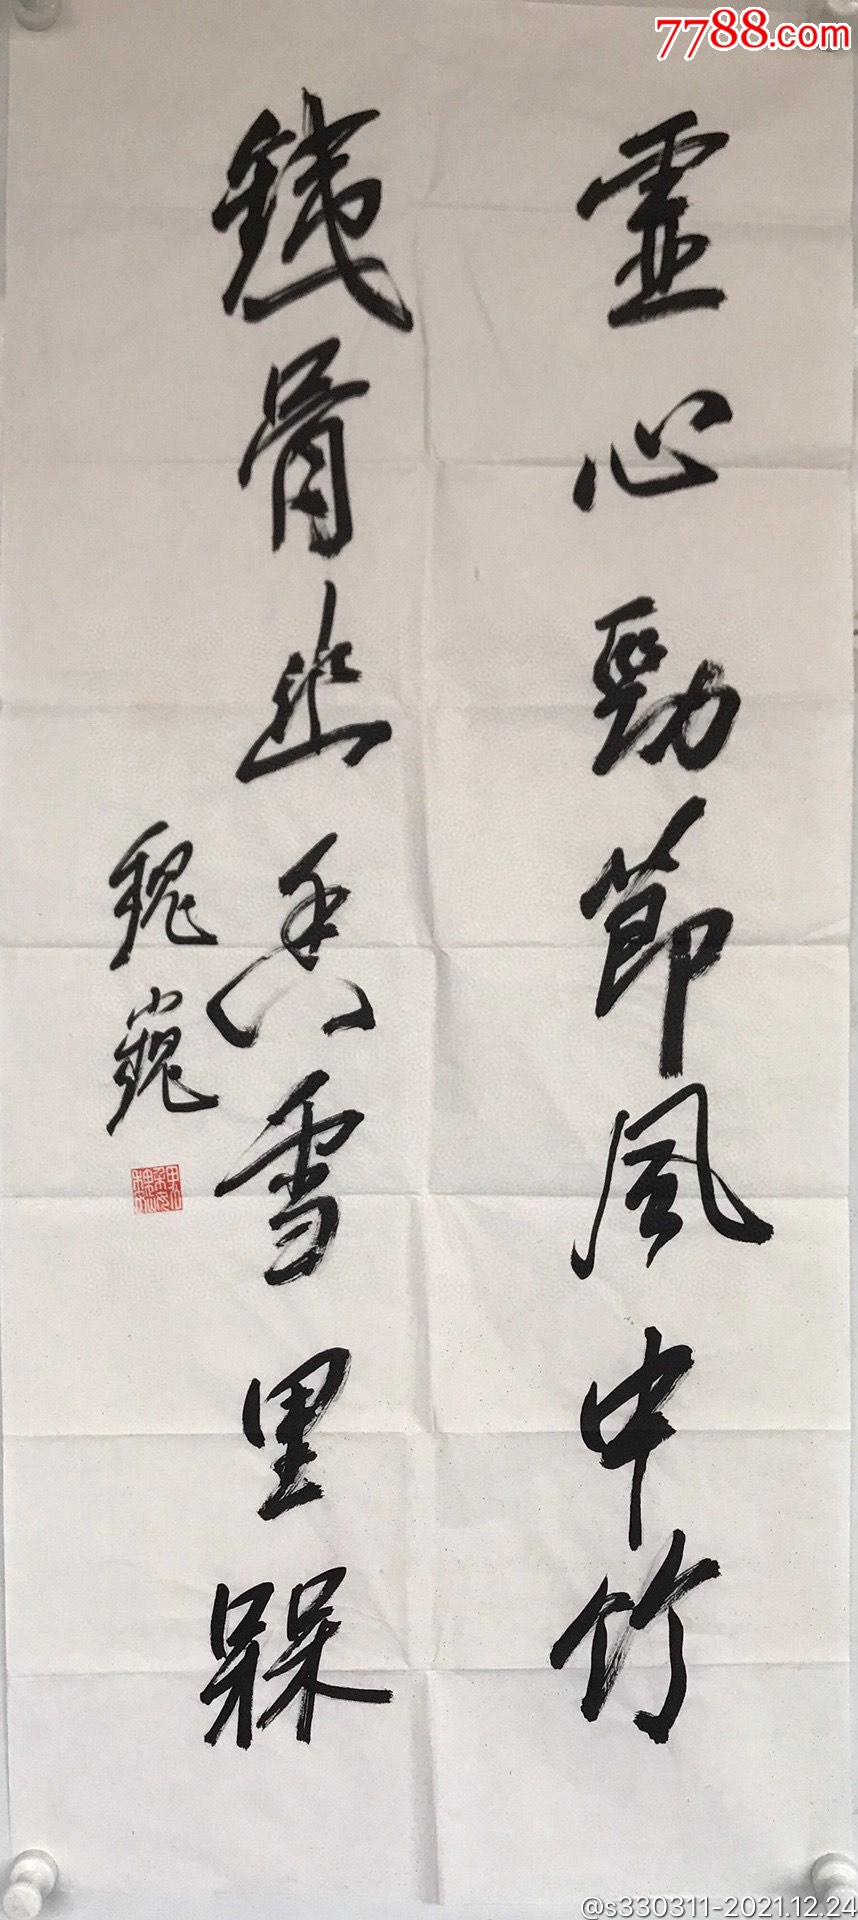 7788.com
靈心勁節風中竹
鐵骨幽香雪里槑
魏巍
@s330311-2021.12.24